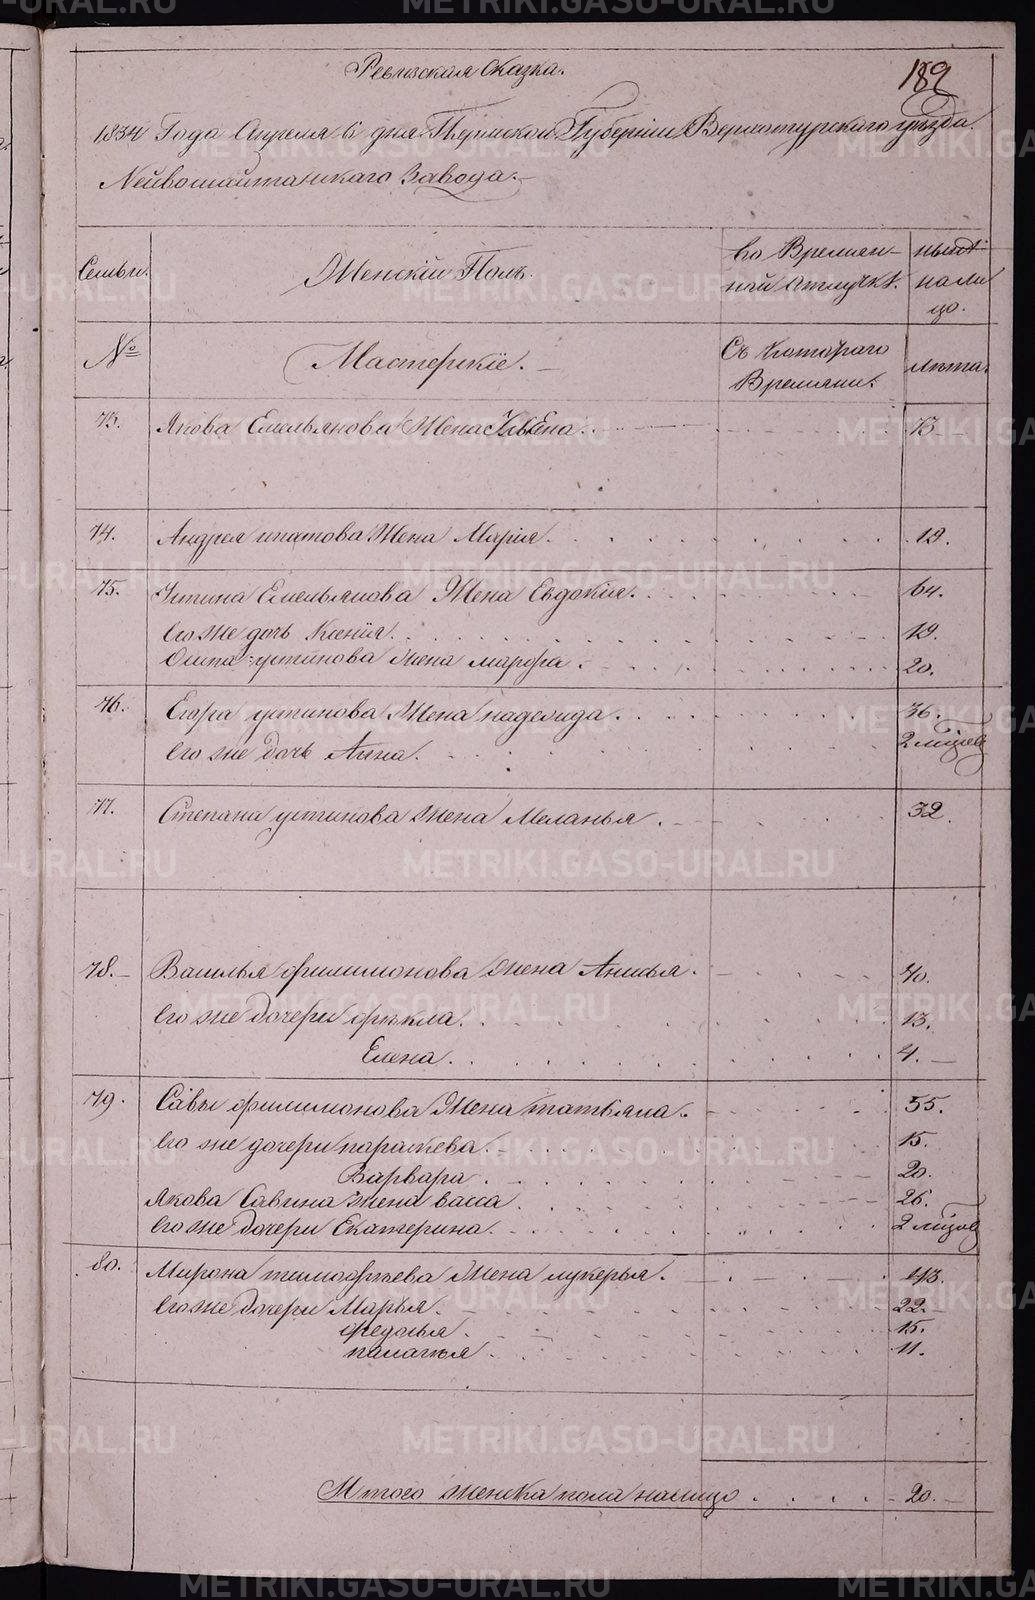 Ревизская Сказка.
189
1834 Года Апреля 6 дня Пермской Губернии Верхотурского уезда.
Нейвошайтанскаго Завода.
Семьи. Женский Полъ. во Времян- ныне
ной отлучкъ. нали
цо.
№ Мастерскіе. Съ котораго лета.
Времяни.
73. Якова Емельянова Жена
74. Андрея ипатова Жена Марія. 19.
75. Устина Емельянова Жена Евдокія. 64.
Его же дочь Ксенія. 19.
Осипа устинова жена марфа. 20.
76. Егора устинова Жена надежда. 36.
Его же дочь Анна. 2
77. Степана устинова жена Меланья. 32.
78. Василья филимонова жена Анисья. 40.
Его же дочери фёкла. 13.
Елена. 4.
79. Савы филимонова Жена татьяна. 55.
Его же дочери параскева. 15.
Варвара. 20.
Якова Савина жена васса. 26.
Его же дочери Екатерина. 2
80. Мирона тимофъева Жена лукерья. 43.
Его же дочери Марья. 22.
федосья. 15.
палагея. 11.
Итого женска пола налицо 20.
METRIKI.GASO-URAL.RU